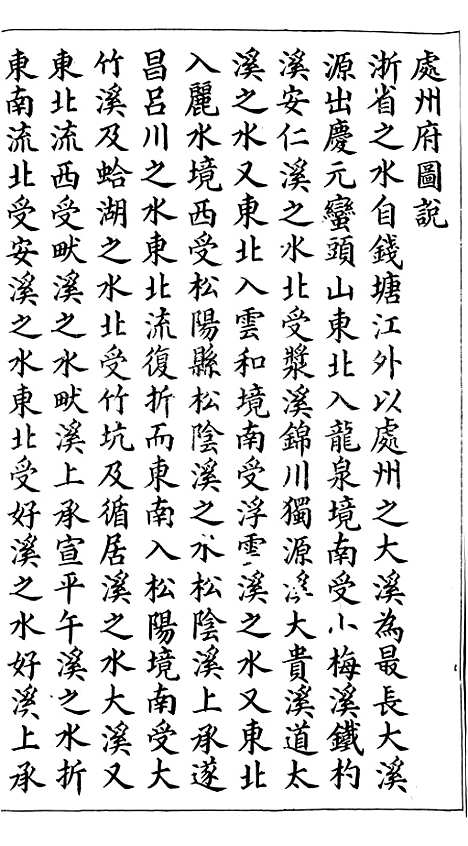 處州府圖說
浙省之水自錢塘江外以處州之大溪為最長大溪
源出慶元蠻頭山東北入龍泉境南受小梅溪鐵杓
溪安仁溪之水北受漿溪錦川獨源溪大貴溪道太
溪之水又東北入雲和境南受浮雲溪之水又東北
入麗水境西受松陽縣松陰溪之水松陰溪上承遂
昌呂川之水東北流復折而東南入松陽境南受大
竹溪及蛤湖之水北受竹坑及循居溪之水大溪又
東北流西受畎溪之水畎溪上承宣平午溪之水折
東南流北受安溪之水東北受好溪之水好溪上承